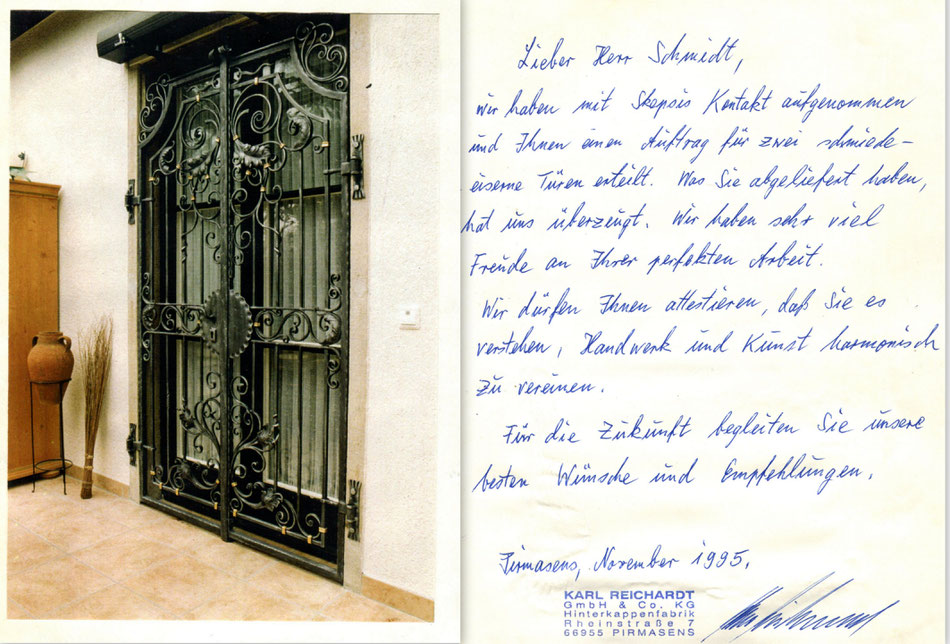 Lieber Herr Schmidt,
wir haben mit Skepsis Kontakt aufgenommen
und Ihnen einen Auftrag für zwei schmiede-
eiserne Türen erteilt. Was Sie abgeliefert haben,
hat uns überzeugt. Wir haben sehr viel
Freude an Ihrer perfekten Arbeit.
Wir dürfen Ihnen attestieren, daß Sie es
verstehen, Handwerk und Kunst harmonisch
zu vereinen.
Für die Zukunft begleiten Sie unsere
besten Wünsche und Empfehlungen.
Pirmasens, November 1995.
KARL REICHARDT
GmbH & Co. KG
Hinterkappenfabrik
Rheinstraße 7
66955 PIRMASENS